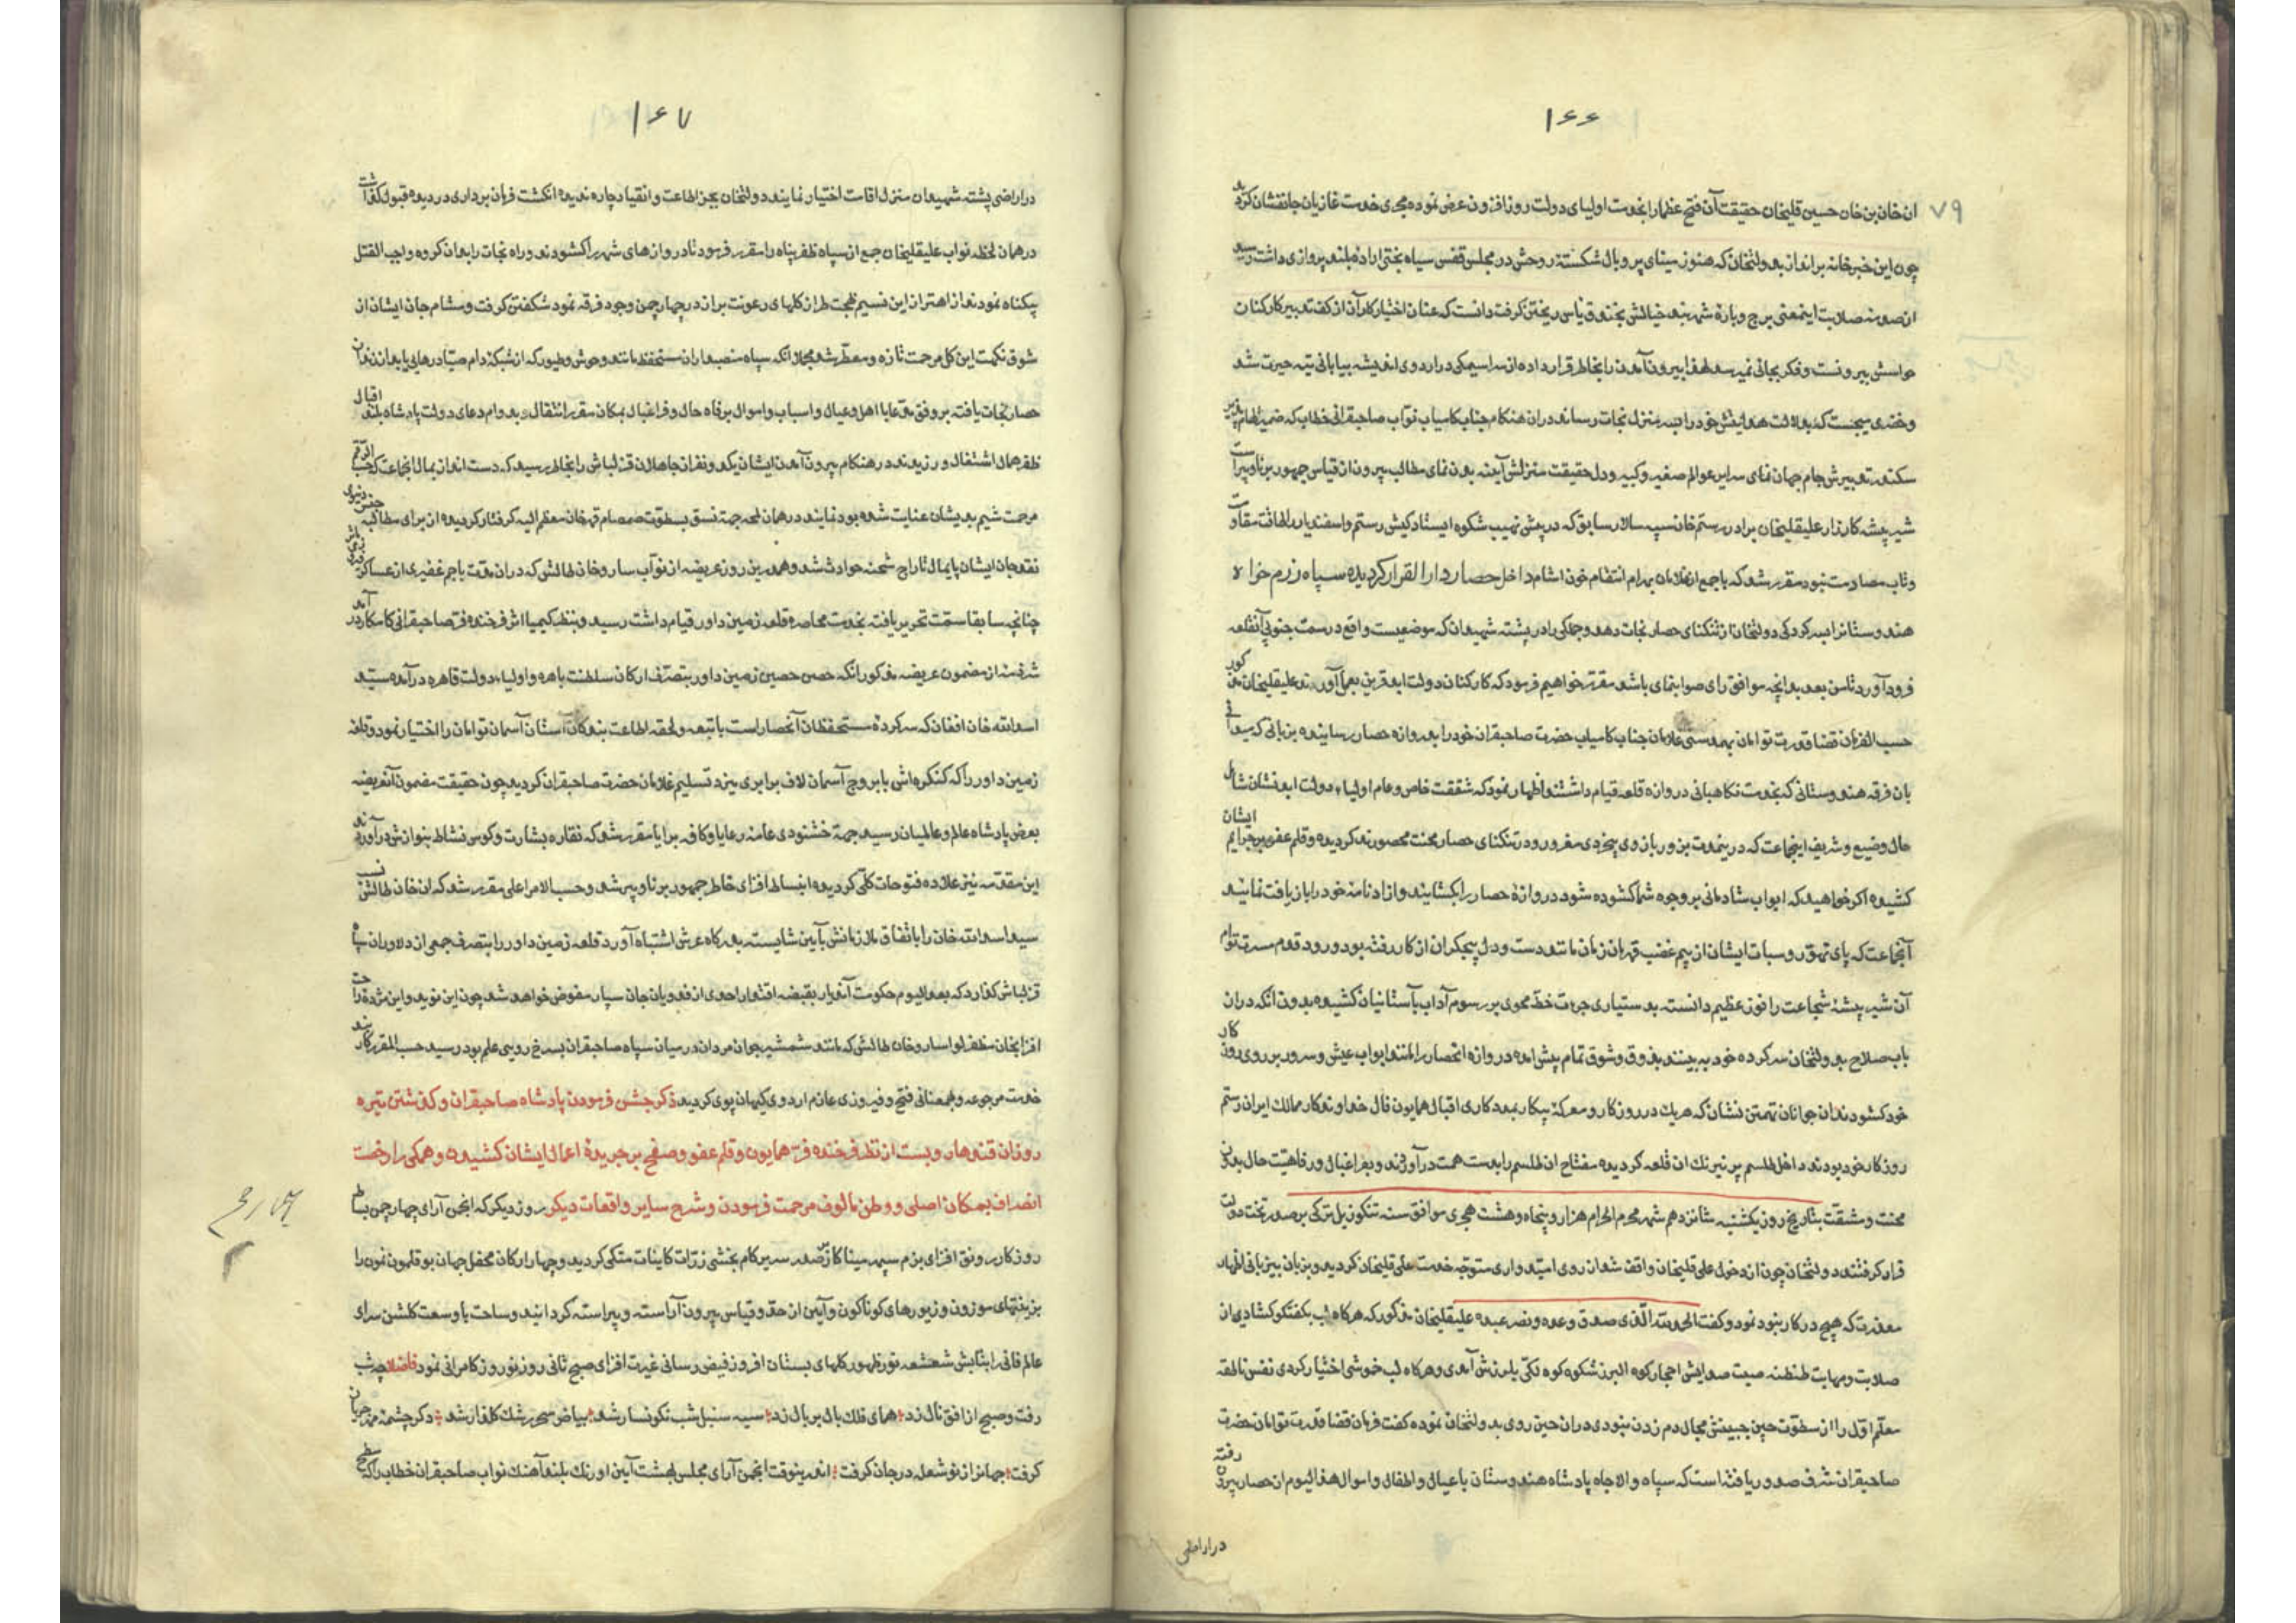 ۱۶۶
۷۹
ان خان بن خان حسین قلیخان حقیقت آن فتح عظما را بخدمت اولیای دولت روزافزون عرض نموده مجری خدمت غازیان جانفشان کردید
چون این خبر خانه برانداز بدولتخان که هنوز مینای پر و بال شکسته روحش در مجلس قفس سیاه بختی اراده بلند پروازی داشت رسید
از صدمه صلابت اینمعنی برج و باره شهربند خیالش بخندق یاس ریختن کرفت دانست که عنان اختیار کار آن از کف تدبیر کارکنان
حواسش بیرونست و فکر بجائی نمیرسد لهذا بیرون آمدن را بخاطر قرار داده از سراسیمکی در اردوی اندیشه بیابانی تیه حیرت شد
و خضری میجست که بدلالت هدایتش خود را بسرمنزل نجات رساند در ان هنکام جناب کامیاب نواب صاحبقرانی خطاب که ضمیر الهام پذیر
سکندر تدبیرش جام جهان نمای سرایر عوالم صغیر و کبیر و دل حقیقت منزلش آینه بدن نمای مطالب بیرون از قیاس جمهور برنا و پیر است
شیر بیشه کارزار علیقلیخان برادر رستم خان سپه سالار سابق که در پیش نهیب شکوه ایستادکیش رستم و اسفندیار را طاقت مقاومت
و تاب مصادمت نبود مقرر شد که با جمع از غلامان بهرام انتقام خون اشام داخل حصار دار القرار کردیده سپاه رزم خواه
هندوستانرا بسرکردکی دولتخان از تنکنای حصار نجات دهد و جملکی را در پشته شهیدان که موضعیست واقع در سمت جنوبی آنقلعه
فرود آورد تا من بعد بدانچه موافق رای صوابنمای باشد مقرر خواهیم فرمود که کارکنان دولت ابد قرین بعمل آورند علیقلیخان مذکور
حسب الفرمان قضا قدرت توامان بهمدستی غلامان جناب کامیاب حضرت صاحبقران خود را بدروازه حصار رسانیده بزبانی که میدانی
بان فرقه هندوستانی که بخدمت نکاهبانی دروازه قلعه قیام داشتند اظهار نمود که شفقت خاص و عام اولیاء دولت ابد نشان شامل
حال وضیع و شریف اینجماعت که در ینمدت بزور بازوی بیخردی مغرور و در تنکنای حصار محنت محصورند کردیده و قلم عفو بر جرایم ایشان
کشیده اکر خواهید که ابواب شادمانی بر وجوه شما کشوده شود دروازه حصار را بکشایند و ازادنامه خود را باز یافت نمایند
آنجماعت که پای تهور و سبات ایشان از بیم غضب قهرمان زمان مانند دست و دل بیجکران از کار رفته بود ورود قدوم مسرت توام
آن شیر بیشه شجاعت را فوز عظیم دانسته بدستیاری جرءت خط محوی بر رسوم آداب پاستانیان کشیده بدون آنکه در ان
باب صلاح بدولتخان سرکرده خود به بینند بذوق و شوق تمام پیش امده دروازه انحصار را مانند ابواب عیش و سرور بر روی روزکار
خود کشودند ان جوانان تهمتن نشان که هریک در روز کار و معرکه پیکار بمددکاری اقبال همایون فال خداوندکار ممالک ایران رستم
روزکار خود بودند داخل طلسم پر نیرنک ان قلعه کردیده مفتاح ان طلسم را بدست همت درآوردند و بفراغبال و رفاهیت حال بدون
محنت و مشقت بتاریخ روز یکشنبه شانزدهم شهر محرم الحرام هزار و پنجاه و هشت هجری موافق سنه تنکوزئیل ترکی بر صدر تخت دولت
قرار کرفتند دولتخان چون از دخول علی قلیخان واقف شد از روی امیدواری متوجه خدمت علی قلیخان کردید و بزبان بیزبانی اظهار
معذرت که هیچ در کار نبود نمود و کفت الحمد لله الذی صدق وعده و نصر عبده علیقلیخان مذکور که هرکاه لب بکفتکو کشادی از
صلابت و مهابت طنطنه صیت صدایش احجار کوه البرز شکوه کوه تکی بلرزش آمدی و هرکاه لب خوشی اختیار کردی نفس ناطقه
معلم اول را از سطوت چین جبینش مجال دم زدن نبودی در ان حین روی بدولتخان نموده کفت فرمان قضا قدرت توامان حضرت
صاحبقران شرف صدور یافته است که سپاه والاجاه پادشاه هندوستان با عیال و اطفال و اموال هذا الیوم از حصار بیرون رفته
در اراضی
۱۶۷
در اراضی پشته شهیدان منزل اقامت اختیار نمایند دولتخان بجز اطاعت و انقیاد چاره ندیده انکشت فرمان برداری در دیده قبول کذاشت
در همان لحظه نواب علیقلیخان جمع از سپاه ظفر پناه را مقرر فرمود تا دروازهای شهر را کشودند و راه نجات را بدان کروه واجب القتل
بیکناه نمودند از اهتزاز این نسیم بهجت طراز کلهای رعونت براز در چهارچمن وجود فرقه نمود شکفتن کرفت و مشام جان ایشان از
شوق نکهت این کل مرحمت تازه و معطر شد مجملا انکه سپاه منصبداران مستحفظ مانند وحوش و طیور که از شبکه دام صیاد رهایی یابد از زندان
حصار نجات یافته بر وفق مدعا با اهل و عیال و اسباب و اموال برفاه حال و فراغبال بمکان مقرر انتقال و بدوام دعای دولت پادشاه بلند اقبال
ظفر همال اشتغال ورزیدند در هنکام بیرون آمدن ایشان یکدو نفر از جاهلان قزلباش را بخاطر رسید که دست انداز بمال انجماعت که حسب الرقم
مرحمت شیم بدیشان عنایت شده بود نمایند در همان لمحه جهة نسق بسطوت صمصام قهر خان معظم الیه کرفتار کردیده از برای مطالبه جنس دنیوی
نقد جان ایشان پایمال تاراج شحنه حوادث شد و همدرین روز عریضه از نوآب ساروخان طالش که در ان مدت با جم غفیری از عساکر
چنانچه سابقا سمت تحریر یافته بخدمت محاصره قلعه زمین داور قیام داشت رسید و بنظر کیمیا اثر فرخنده فر صاحبقرانی کامکار در آمد
شرفند از مضمون عریضه مذکور انکه حصن حصین زمین داور بتصرف ارکان سلطنت باهره و اولیاء دولت قاهره درآمده سید
اسدالله خان افغان که سرکرده مستحفظان آنحصار است با تبعه و لحقه اطاعت بندکان آستان آسمان توامان را اختیار نمود و قلعه
زمین داور را که کنکره اش با بروج آسمان لاف برابری میزد تسلیم غلامان حضرت صاحبقران کردید چون حقیقت مضمون آنعریضه
بعرض پادشاه عالم و عالمیان رسید جهة خشنودی عامه رعایا و کافه برایا مقرر شد که نقاره بشارت و کوس نشاط بنوازش درآوردند
این مقدمه نیز علاده فتوحات کلی کردیده انبساط افزای خاطر جمهور برنا و پیر شد و حسب الامر اعلی مقرر شد که ان خان طالش نسب
سید اسدالله خان را باتفاق ملازمانش بآیین شایسته بدرکاه عرش اشتباه آورد قلعه زمین داور را بتصرف جمعی از دلاوران سپاه
قزلباش کذارد که بعد الیوم حکومت آندیار بقبضه اقتدار احدی از فدویان جان سپار مفوض خواهد شد چون این نوید و این مژده راحت
افزا بخان مظفر لوا ساروخان طالش که مانند شمشیر جوان مردان در میان سپاه صاحبقران بسرخ رویی علم بود رسید حسب المقرر کاربند
خدمت مرجوعه و همعنانی فتح و فیروزی عازم اردوی کیهان پوی کردید ذکر جشن فرمودن پادشاه صاحبقران و کذشتن تیره
روزان قندهار و بست از نظر فرخنده فر همایون و قلم عفو و صفح بر جریده اعمال ایشان کشیدن و همکی را رخصت
انصراف بمکان اصلی و وطن مالوف مرحمت فرمودن و شرح سایر واقعات دیکر روز دیکر که انجمن آرای چهارچمن بساط
روزکار رونق افزای بزم سپهر مینا کار صدر سریر کام بخشی زرات کاینات متکی کردید و چهار ارکان محفل جهان بوقلمون نمون را
بزینتهای موزون و زیورهای کوناکون و آیین از حد و قیاس بیرون آراسته و پیراسته کردانید و ساحت با وسعت کلشن سرای
عالم فانی را بتابش شعشعه نور ظهور کلهای بستان افروز فیض رسانی غیرت افزای صبح ثانی روز نوروز کامرانی نمود چو شب
رفت و صبح از افق نال زد همای فلک بال بر بال زد سیه سنبل شب نکونسار شد بیاض سحر رشک کلنار شد دکر چشمه مهر جریان
کرفت جهانرا ز نو شعله در جان کرفت اندرینوقت انجمن آرای مجلس بهشت آیین اورنک بلند آهنک نواب صاحبقران خطاب را که سطح